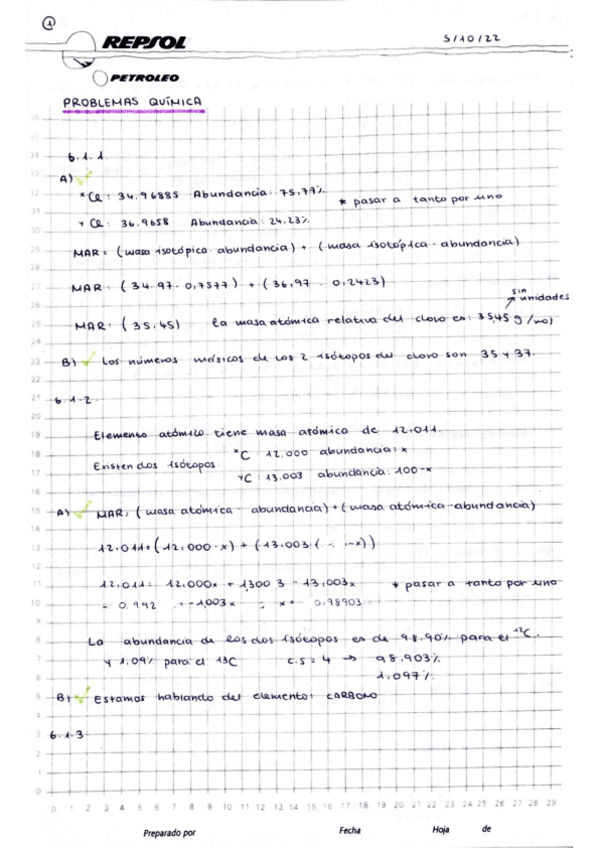 1
REPSOL
5/10/22
PETROLEO
PROBLEMAS QUÍMICA
6.1.1
A)
ˣCl: 34.96885 Abundancia: 75,77%
* pasar a tanto por uno
ʸCl: 36,9658 Abundancia: 24.23%
MAR = (masa isotópica · abundancia) + (masa isotópica · abundancia)
MAR: (34.97 · 0,7577) + (36,97 · 0,2423)
sin unidades
MAR: (35.45) la masa atómica relativa del cloro es: 35,45 g/mol
B) Los números másicos de los 2 isótopos del cloro son 35 y 37.
6.1.2
Elemento atómico tiene masa atómico de 12,011.
Existen dos isótopos
ˣC 12,000 abundancia: x
ʸC: 13,003 abundancia: 100-x
A) MAR: (masa atómica · abundancia) + (masa atómica · abundancia)
12,011 = (12,000 · x) + (13,003 (1-x))
12,011: 12,000x + 1300 3 - 13,003x * pasar a tanto por uno
- 0.992 = -1,003x ; x = 0,98903
La abundancia de los dos isótopos es de 98.90% para el ¹²C.
y 1.09% para el 13C c.s = 4 → 98,903%
1,097%
B) Estamos hablando del elemento: CARBONO
6.1.3
36
35
34
33
32
31
30
29
28
27
26
25
24
23
22
21
20
19
18
17
16
15
14
13
12
11
10
9
8
7
6
5
4
3
2
1
0
0 1 2 3 4 5 6 7 8 9 10 11 12 13 14 15 16 17 18 19 20 21 22 23 24 25 26 27 28 29
Preparado por Fecha Hoja de